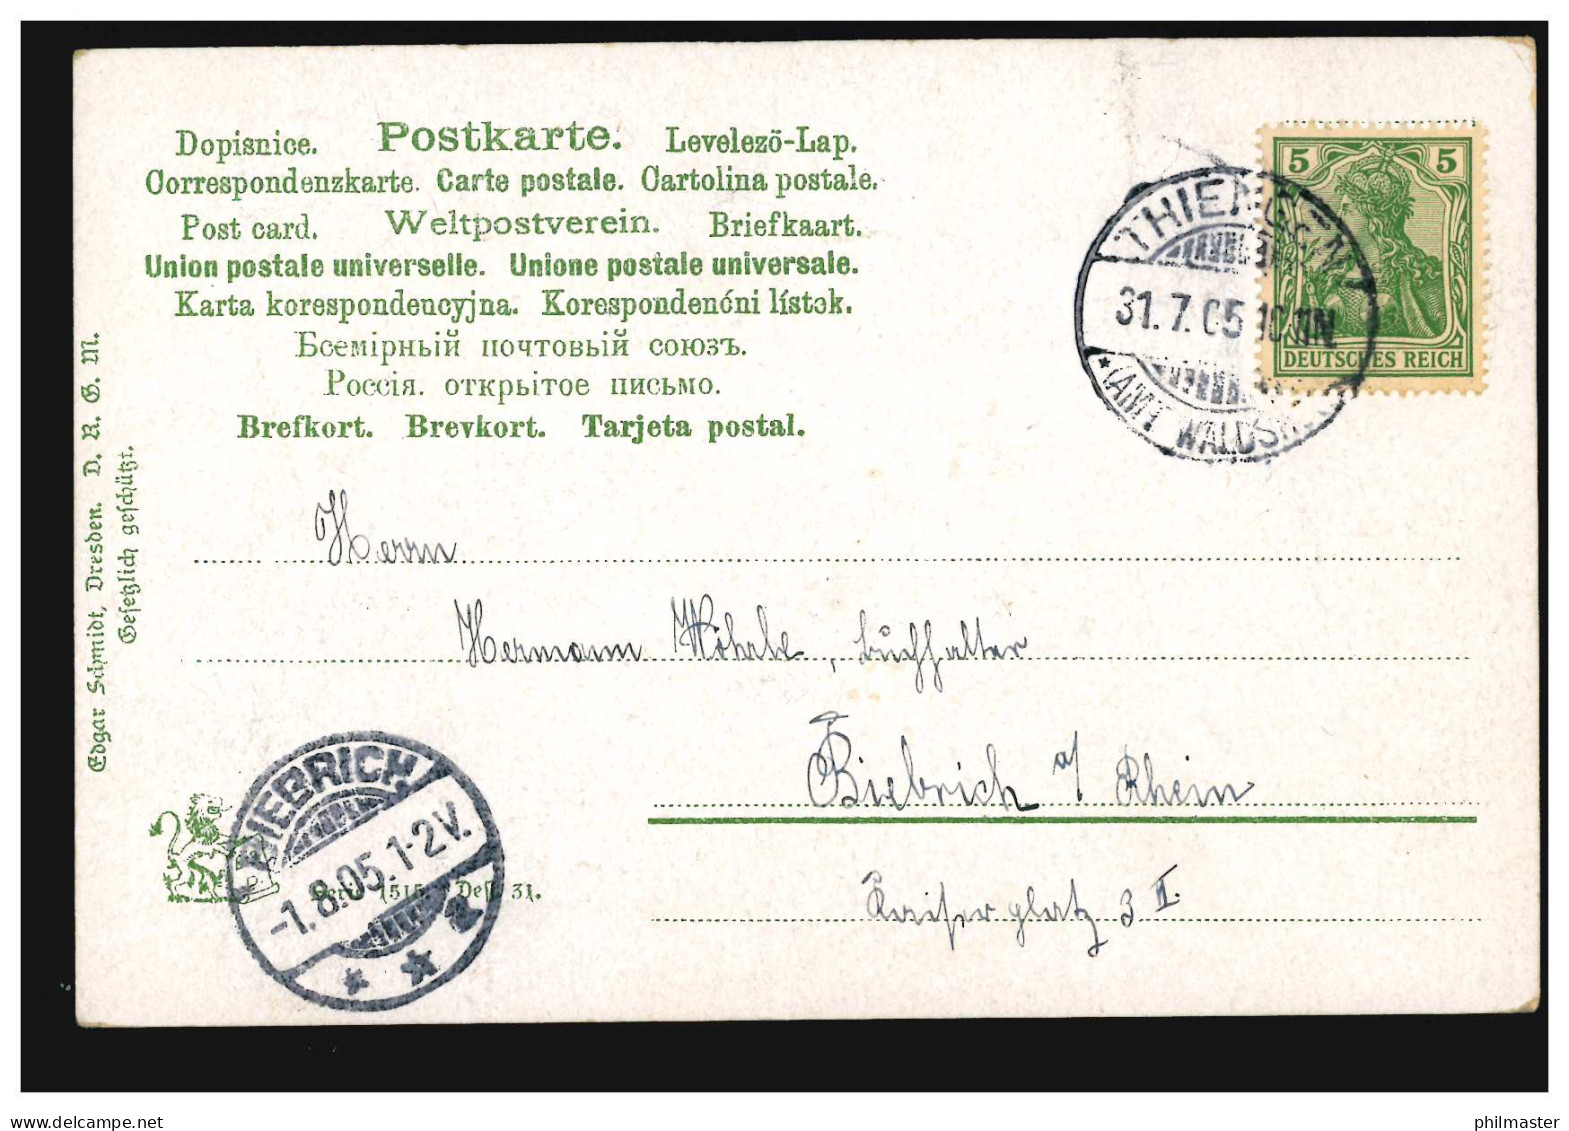 Dopisnice. Postkarte. Levelező-Lap.
Correspondenzkarte. Carte postale. Cartolina postale.
Post card. Weltpostverein. Briefkaart.
Union postale universelle. Unione postale universale.
Karta korespondencyjna. Korespondenčni lístek.
Всемірный почтовый союзъ.
Россія. открытое письмо.
Brefkort. Brevkort. Tarjeta postal.
5 5
DEUTSCHES REICH
THIENGEN
31.7.05 10-11N.
(AMT WALDSH
Edgar Schmidt, Dresden. D. R. G. M.
Gesetzlich geschützt.
Herrn
Hermann Wöhrle, Buchhalter
Biebrich a/ Rhein
Kaiserplatz 3 II.
BIEBRICH
-1.8.05.1-2V.
Serie 1515 Des. 31.
www.delcampe.net
philmaster